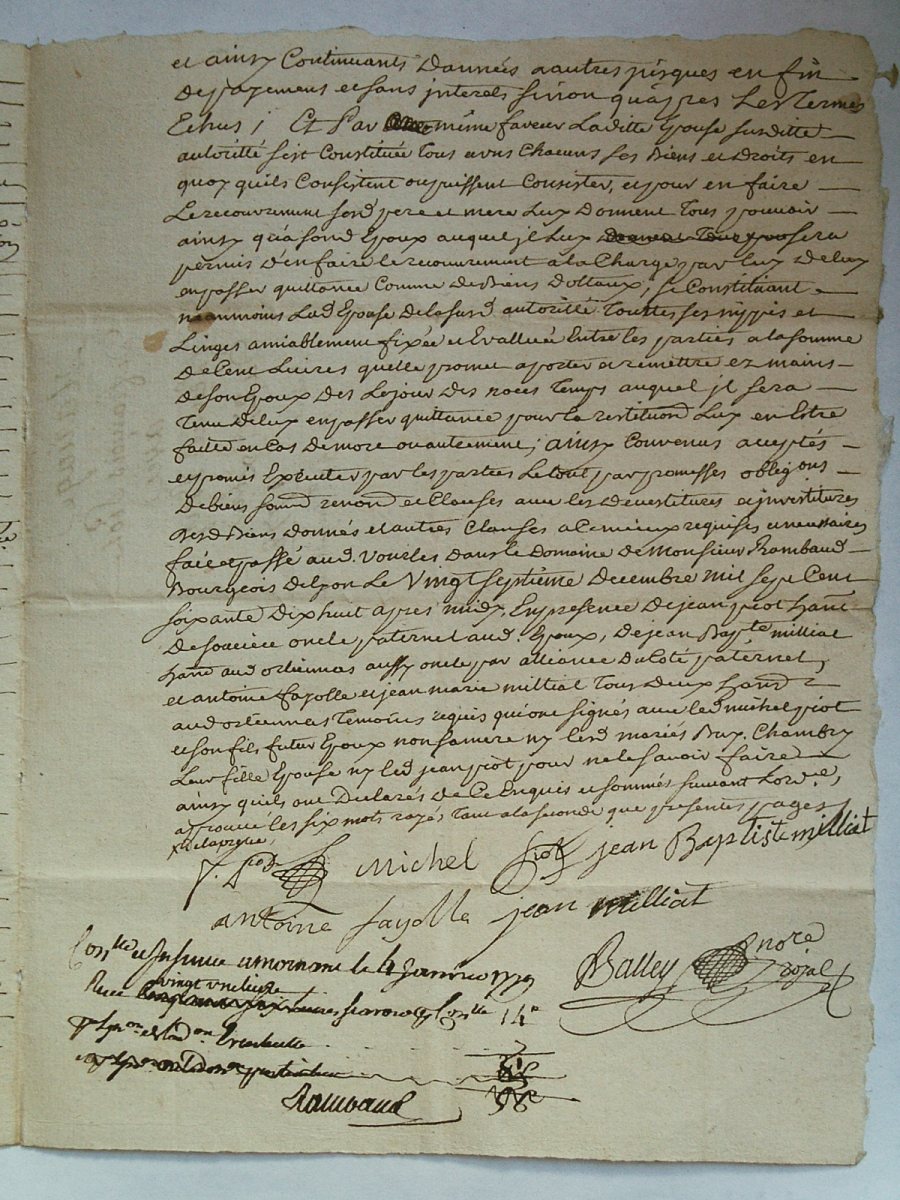 et ainsy Continuants Dannées a autres jusques en fin
De payement et sans jnterets sinon quâpres Les Termes
Echus ; Et Par même faveur Laditte Epouse susditte
autorité sest Constituée Tous avns Chacuns ses Biens et Droits en
quoy quils Consistent ou puissent Consister, et pour en faire
Le recouvrement sesd pere et mere Luy Donnent Tous pouvoir
ainsy qua sond Epoux auquel jl Luy sera
permis D'en faire le recouvrement a la Charge par luy De luy
en passer quittance Comme de Biens Dottaux ; se Constituant
neanmoins Lad Epouse De la susd autorité Touttes ses nippes et
Linges amiablement fixée et Evalluée Entre les parties a la somme
De Cent Livres quelle promet aporter et remettre ez mains
De son Epoux Des Le jour Des noces Temps auquel jl sera
Tenu De luy en passer quittance pour la restitution Luy en Estre
faitte en Cas De mort ou autrement ; ainsy Convenus acceptés
et promis Exécuter par les parties Le tout par promesses obligons
De biens soumd renond et Clauses avec les Devestitures et jnvestitures
Des D Biens Donnés et autres Clauses a Ce mieux requises et necessaires
fait et passé aud. Vourles Dans le Domaine de Monsieur Rambaud
Bourgeois De Lyon Le Vingt septième Decembre mil sept Cent
soixante Dix huit apres midy, En presence De jean piot habt
De soucieu oncle paternel aud Epoux, De jean Bapte milliat
habt aud orliennas aussy oncle par alliance Du Coté paternel,
et antoine fayolle et jean marie milliat Tous Deux habts
aud orliennas Temoins requis qui ont signés avec led michel piot
et son fils futur Epoux non sa mere ny lesd mariés Chambry
Leur fille Epouse ny led jean piot pour ne le savoir faire
ainsy quils ont Declarés De Ce Enquis et sommés suivant Lord.ce,
approuvé les six mots rayés Tant a la seconde que presentes pages
J. piot Michel piot jean Baptiste milliat
antoine fayolle jean milliat
Balley nore royal
Conlle et Insinué a mornant le 4 Janvier 1779
Reçu vingt une livre 14s
Rambaud